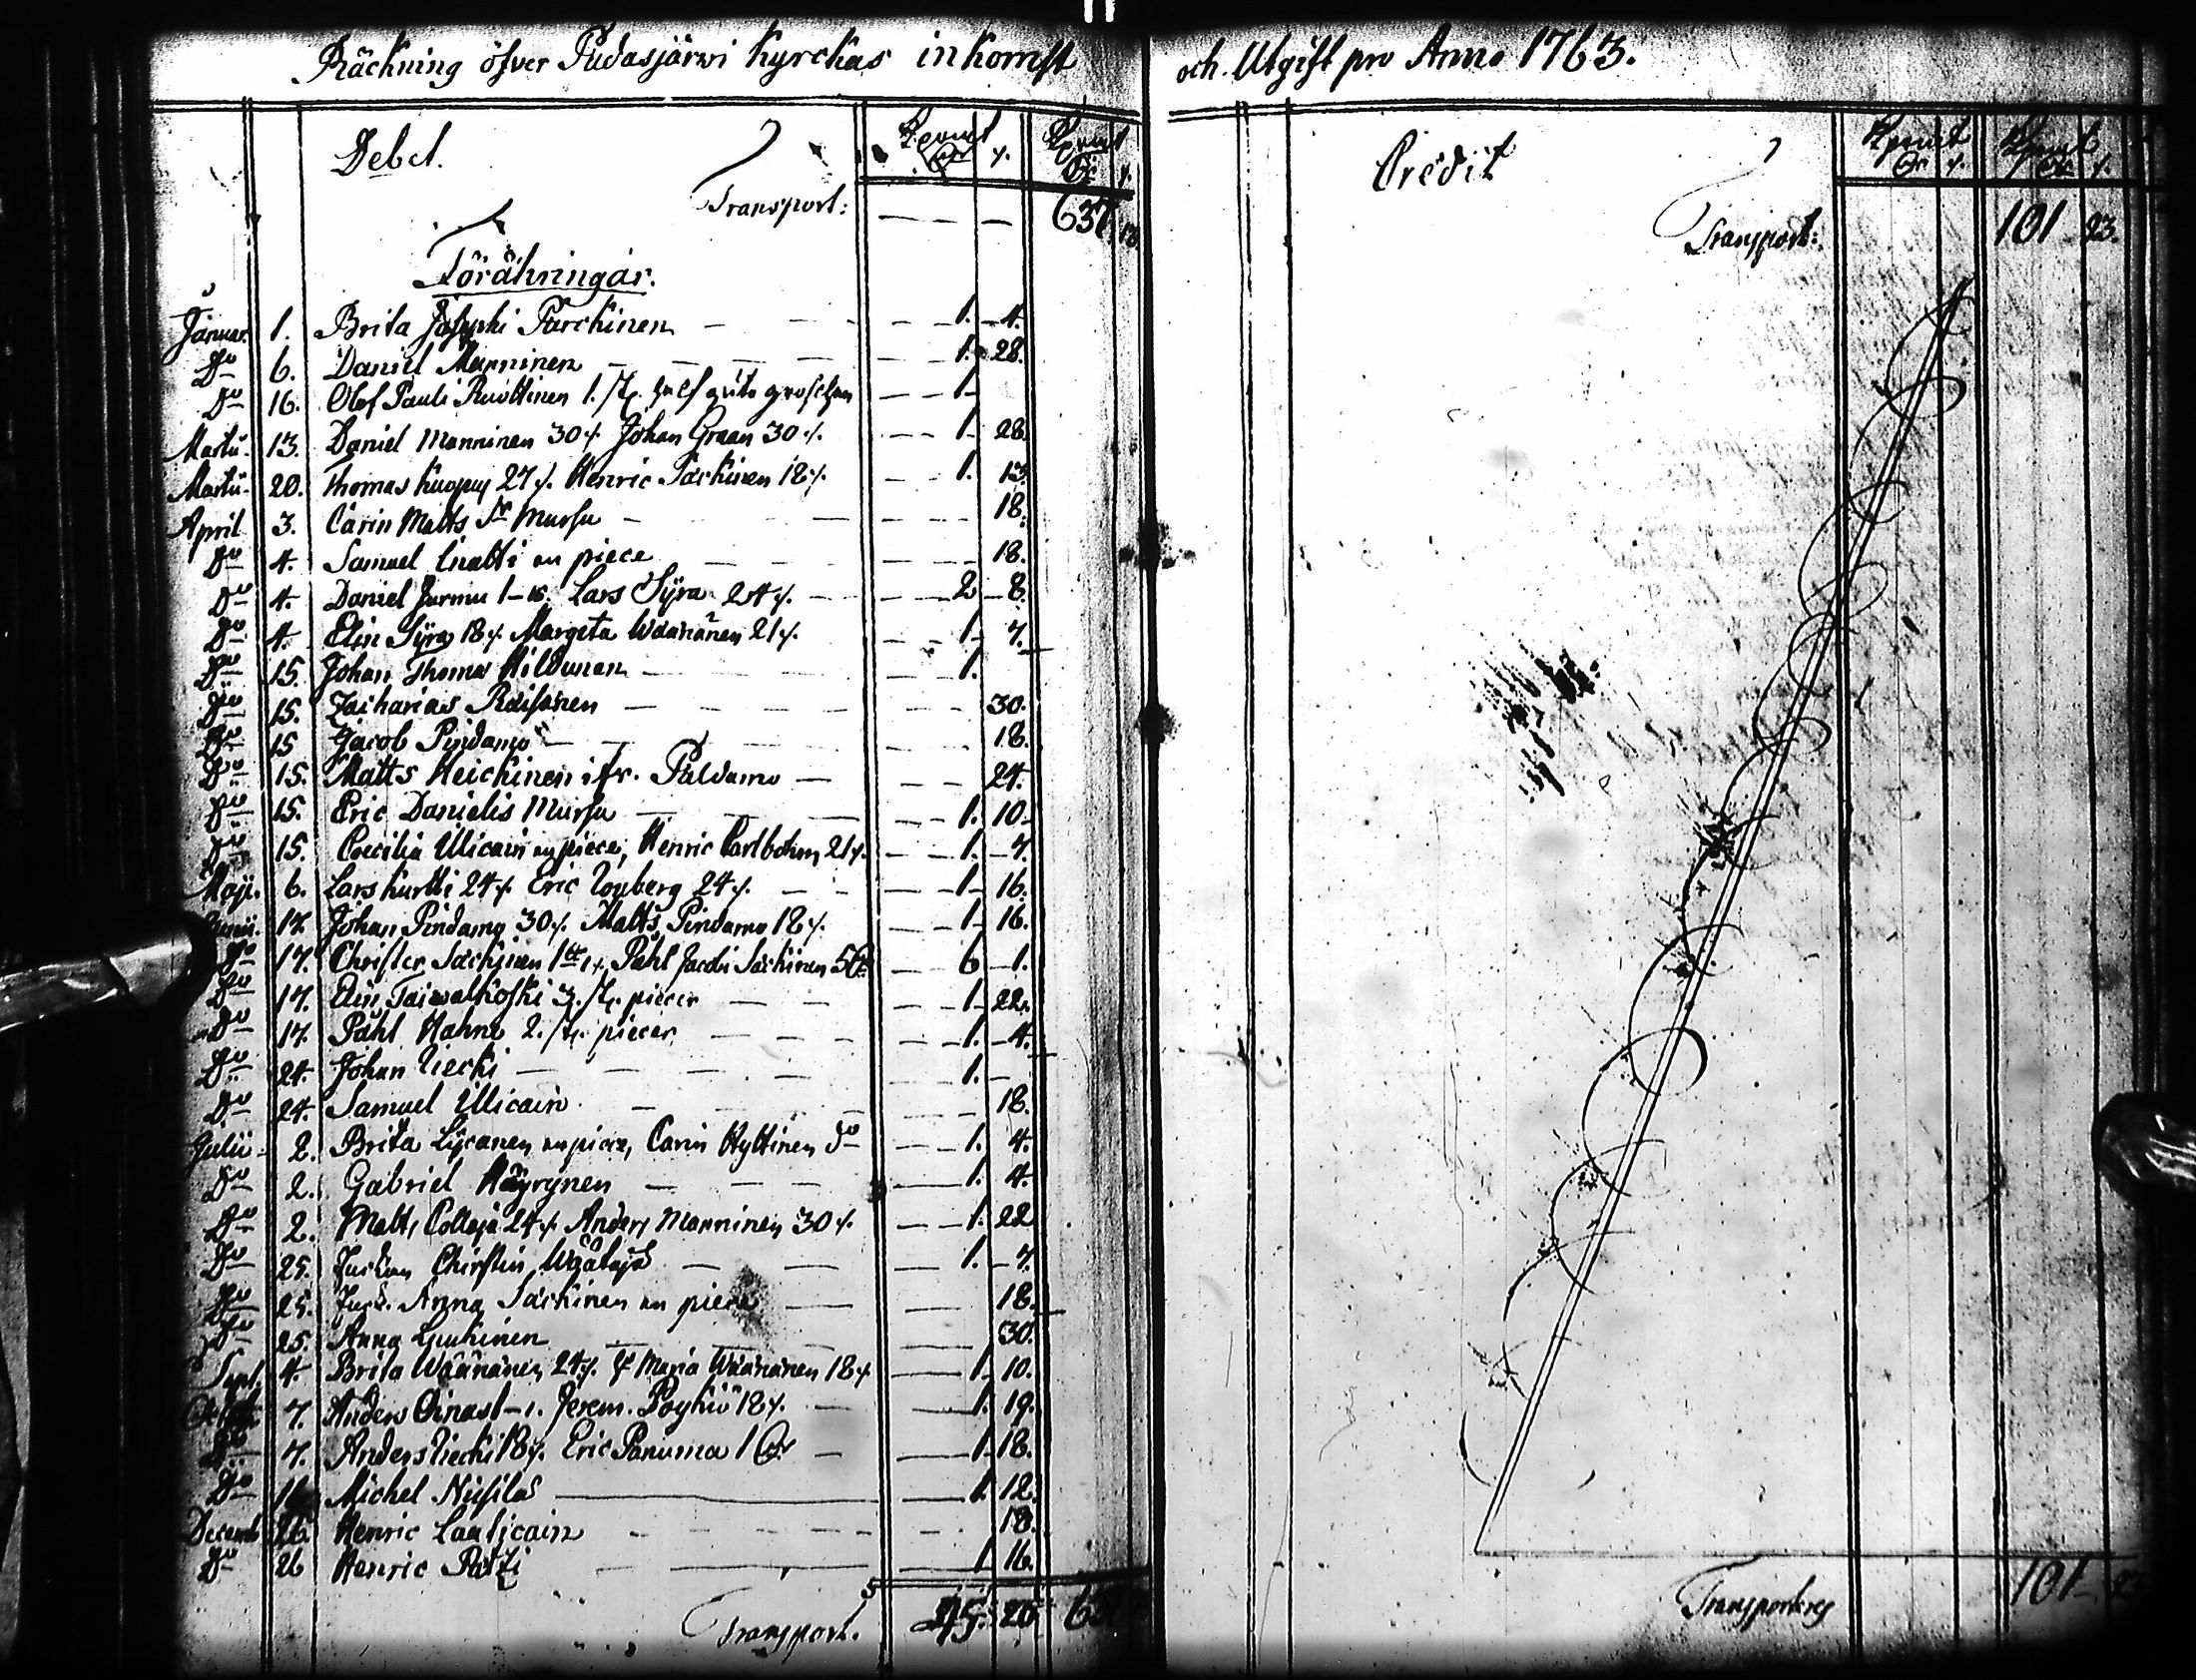 Räckning öfver Pudasjärwi Kyrckas inkomst
Debet.
Transport: 637 18.
Förähringar.
Januar. 1. Brita Josephi Parckinen 1. 4.
Do 6. Daniel Manninen 1. 28.
Do 16. Olof Pauli Ruottinen 1. st. half gute groschen 1.
Martii. 13. Daniel Manninen 30 Johan Graan 30 1. 28
Martii. 20. Thomas 27 Henric Särkinen 18 1. 13.
April 3. Carin Matts Dr Mursu 18.
Do 4. Samuel Inatti en piece 18.
Do 4. Daniel Jurmu 1-16. Lars Syra 24 2 8.
Do 4. Elin Syra 18 Margeta Wäänänen 21 1. 7.
Do 15. Johan Thomas Hildunen 1.
Do 15. Zacharias Räisänen 30.
Do 15 Jacob Pindamo 18.
Do 15. Matts Heickinen ifr. Paldamo 24.
Do 15. Eric Danielis Mursu 1. 10.
Do 15. Coecilia Ulicain en piece, Henric Carlbohm 21 1. 7.
Maji. 6. Lars Kurtti 24 Eric 24 1. 16.
Junii. 17. Johan Pindamo 30 Matts Pindamo 18 1. 16.
Do 17. Christer Särkinen Påhl Jacobi Särkinen 6 1.
Do 17. Elin Taiwalkoski 3. st. piecer 1. 22.
Do 17. Påhl Hahno 2. st. piecer 1. 4.
Do 24. Johan Liecki 1.
Do 24. Samuel Ulicain 18.
Julii 2. Brita Lycanen en piece, Carin Hyttinen do 1. 4.
Do 2. Gabriel Häyrynen 1. 4.
Do 2. Matts Colleja 24 Anders Manninen 30 1. 22
Do 25. Christin Wäätajä 1. 7.
Do 25. Anna Särkinen en piece 18.
Do 25. Anna Liuckinen 30.
Sept. 4. Brita Wäänänen 24 Maria Wäänänen 18 1. 10.
7. Anders Oinas 1-1. Jerem. Pöykiö 18 1. 19.
Do 7. Anders Liecki 18 Eric Panuma 1 1. 18.
Do Michel Niusilas 1. 12.
Decemb 26 Henric Lauticain 18.
Do 26 Henric Patzi 1 16.
Transport. 45. 26
och Utgift pro Anno 1763.
Credit
Transport: 101 23.
Transporteres 101